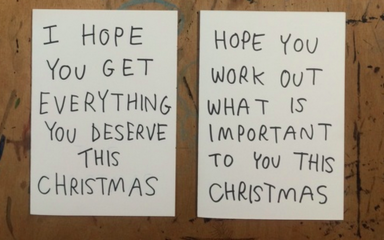 I HOPE
YOU GET
EVERYTHING
YOU DESERVE
THIS
CHRISTMAS
HOPE YOU
WORK OUT
WHAT IS
IMPORTANT
TO YOU THIS
CHRISTMAS